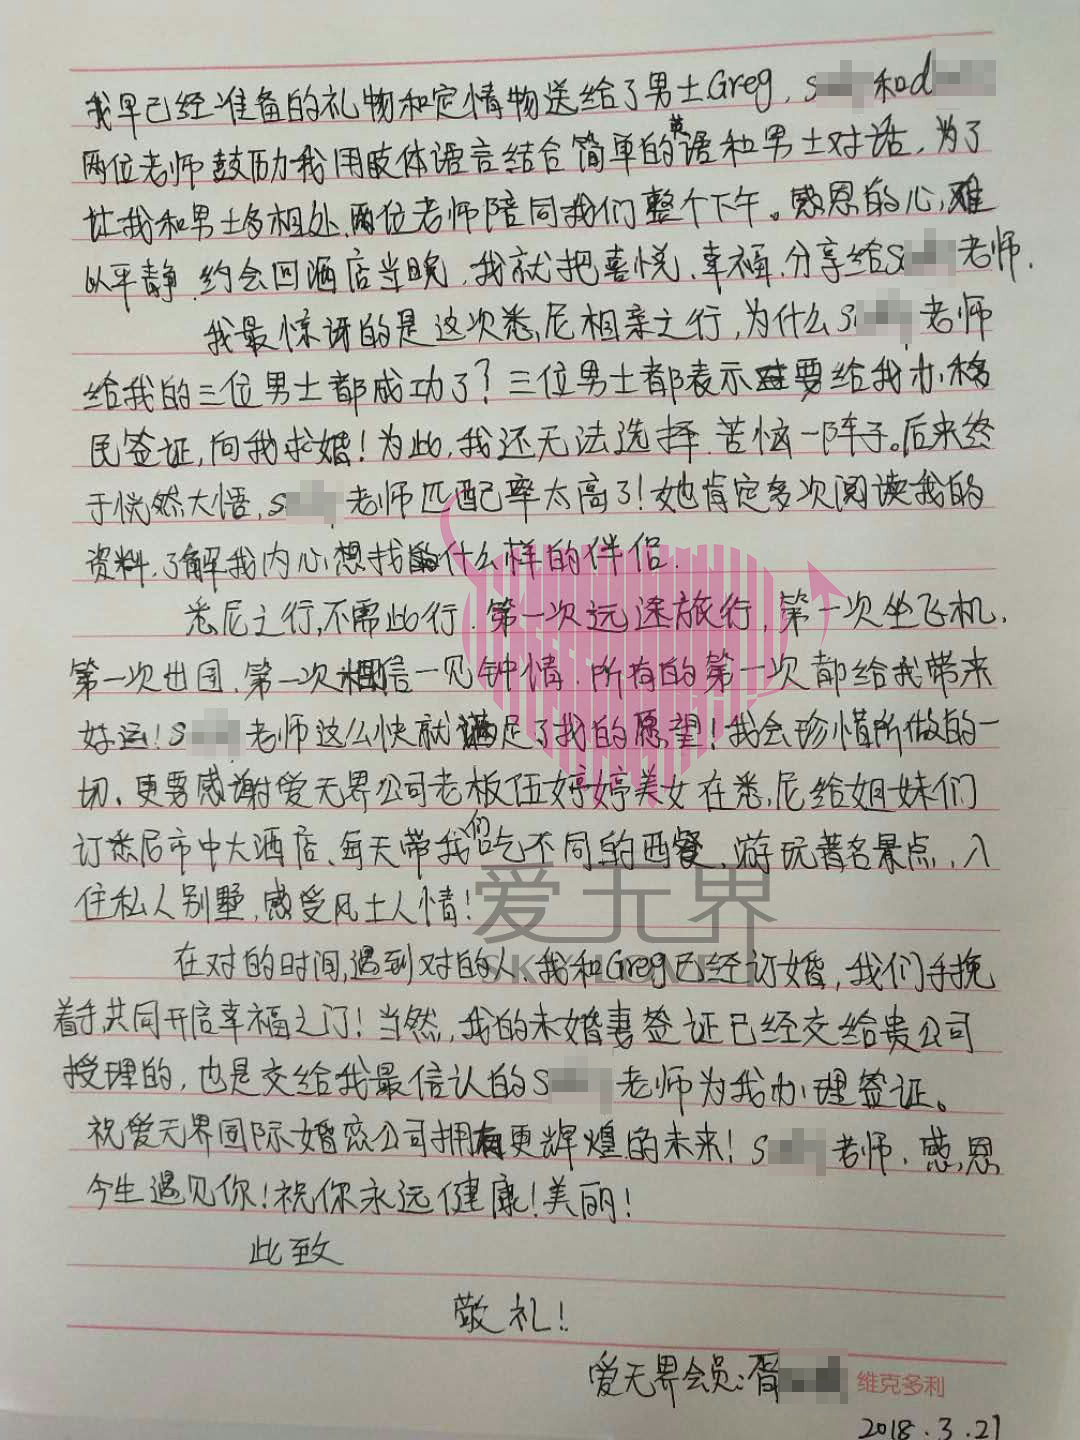 我早已经准备的礼物和定情物送给了男士Greg,s 和d
两位老师鼓励我用肢体语言结合简单的英语和男士对话,为了
让我和男士多相处,两位老师陪同我们整个下午。感恩的心,难
以平静,约会回酒店当晚,我就把喜悦、幸福,分享给S 老师.
我最惊讶的是这次悉尼相亲之行,为什么S 老师
给我的三位男士都成功了?三位男士都表示要给我办移
民签证,向我求婚!为此,我还无法选择.苦恼一阵子。后来终
于恍然大悟,s 老师匹配率太高了!她肯定多次阅读我的
资料,了解我内心想找什么样的伴侣.
悉尼之行,不需此行.第一次远途旅行,第一次坐飞机,
第一次出国,第一次相信一见钟情.所有的第一次都给我带来
好运!S 老师这么快就满足了我的愿望!我会珍惜所做的一
切、更要感谢爱无界公司老板伍婷婷美女在悉尼给姐妹们
订悉尼市中大酒店、每天带我们吃不同的西餐、游玩著名景点,入
住私人别墅,感受风土人情!
在对的时间,遇到对的人、我和Greg已经订婚,我们手挽
着手共同开启幸福之门!当然,我的未婚妻签证已经交给贵公司
授理的,也是交给我最信认的S 老师为我办理签证。
祝爱无界国际婚恋公司拥有更辉煌的未来!S 老师,感恩
今生遇见你!祝你永远健康!美丽!
此致
敬礼!
爱无界会员:胥
维克多利
2018.3.21
爱无界
SKY LOVE